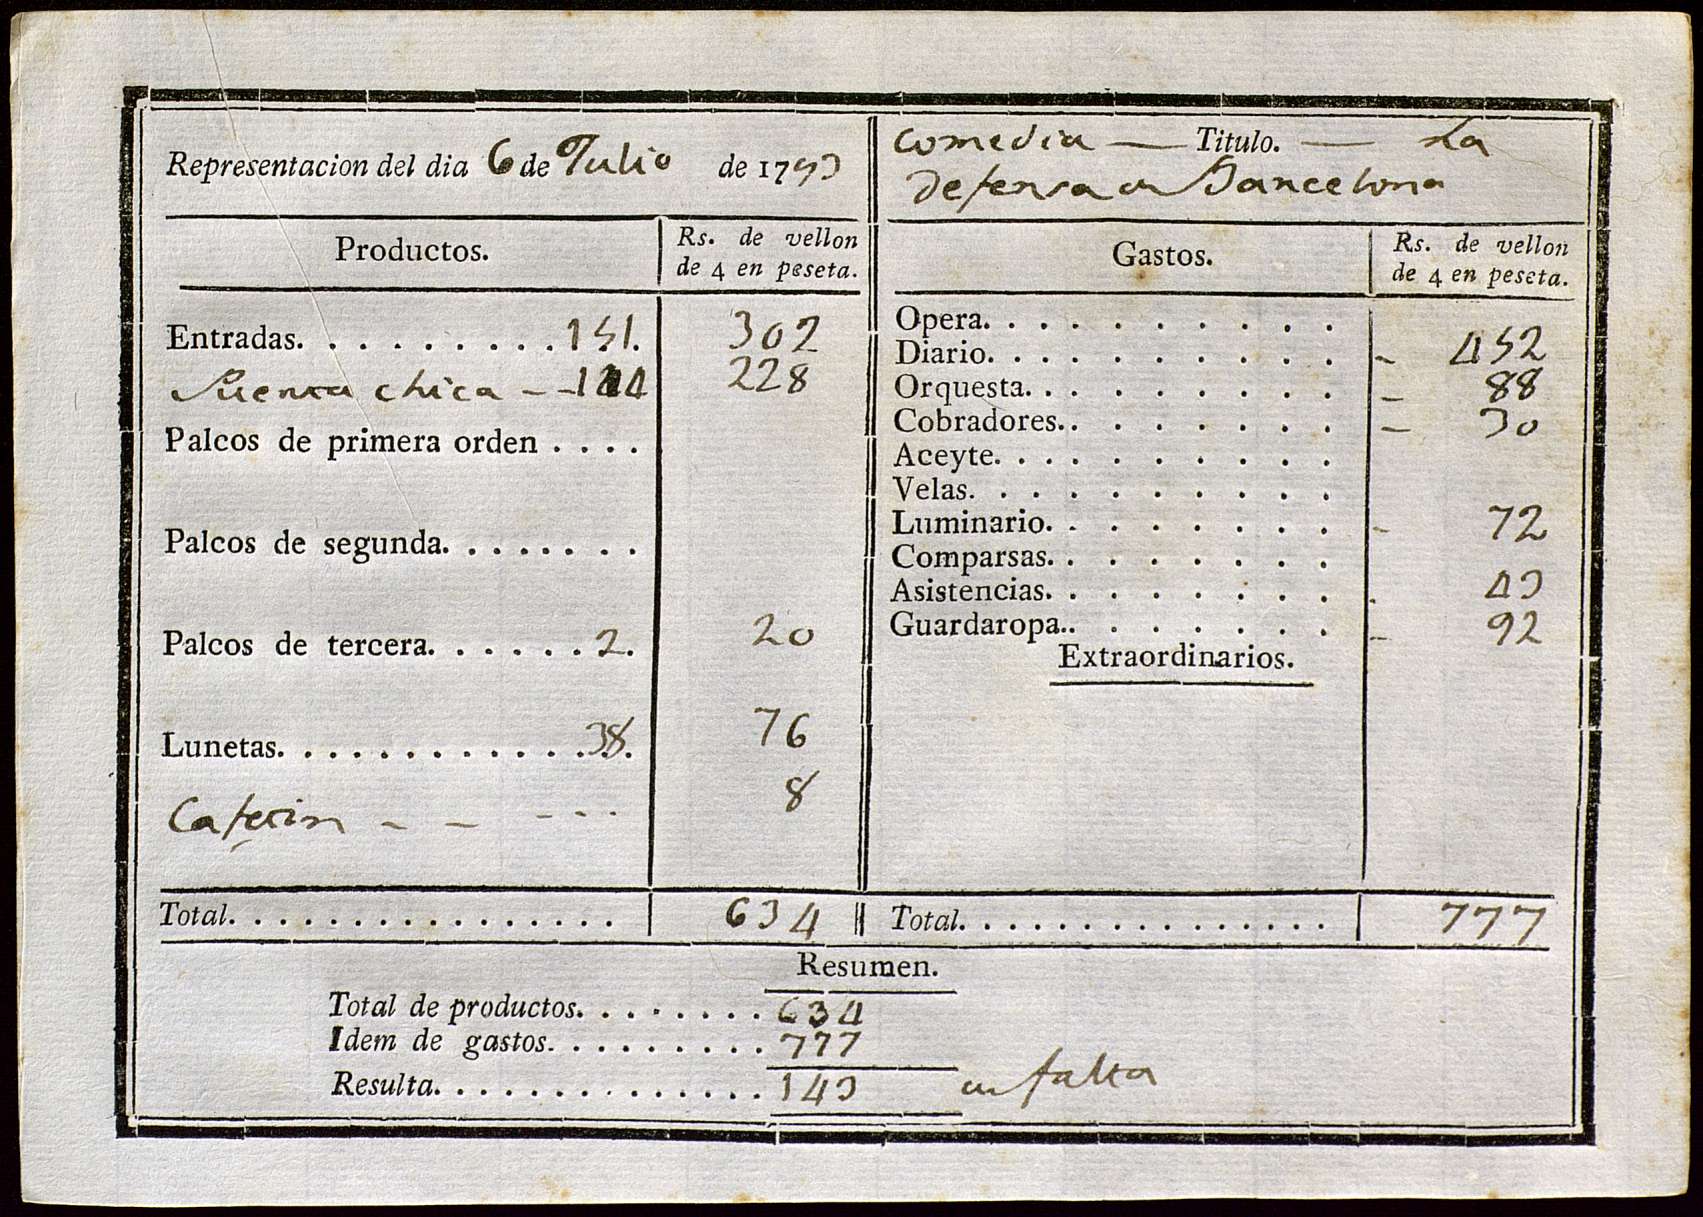 Representacion del dia 6 de Julio de 1793
Productos. Rs. de vellon
de 4 en peseta.
Entradas. . . . . . . . . . 151. 302
Puerta chica - - 114 228
Palcos de primera orden . . . .
Palcos de segunda. . . . . . . .
Palcos de tercera. . . . . . 2. 20
Lunetas. . . . . . . . . . . . 38. 76
Cafetin - - - - - - 8
Total. . . . . . . . . . . . . . . . 634
Comedia — Titulo. — La
defensa de Barcelona
Gastos. Rs. de vellon
de 4 en peseta.
Opera. . . . . . . . . .
Diario. . . . . . . . . . - 452
Orquesta. . . . . . . . . - 88
Cobradores. . . . . . . . - 30
Aceyte. . . . . . . . . .
Velas. . . . . . . . . .
Luminario. . . . . . . . - 72
Comparsas. . . . . . . .
Asistencias. . . . . . . . 43
Guardaropa. . . . . . . . - 92
Extraordinarios.
Total. . . . . . . . . . . . . . . 777
Resumen.
Total de productos. . . . . . . . 634
Idem de gastos. . . . . . . . . . 777
Resulta. . . . . . . . . . . . . . 143 en falta